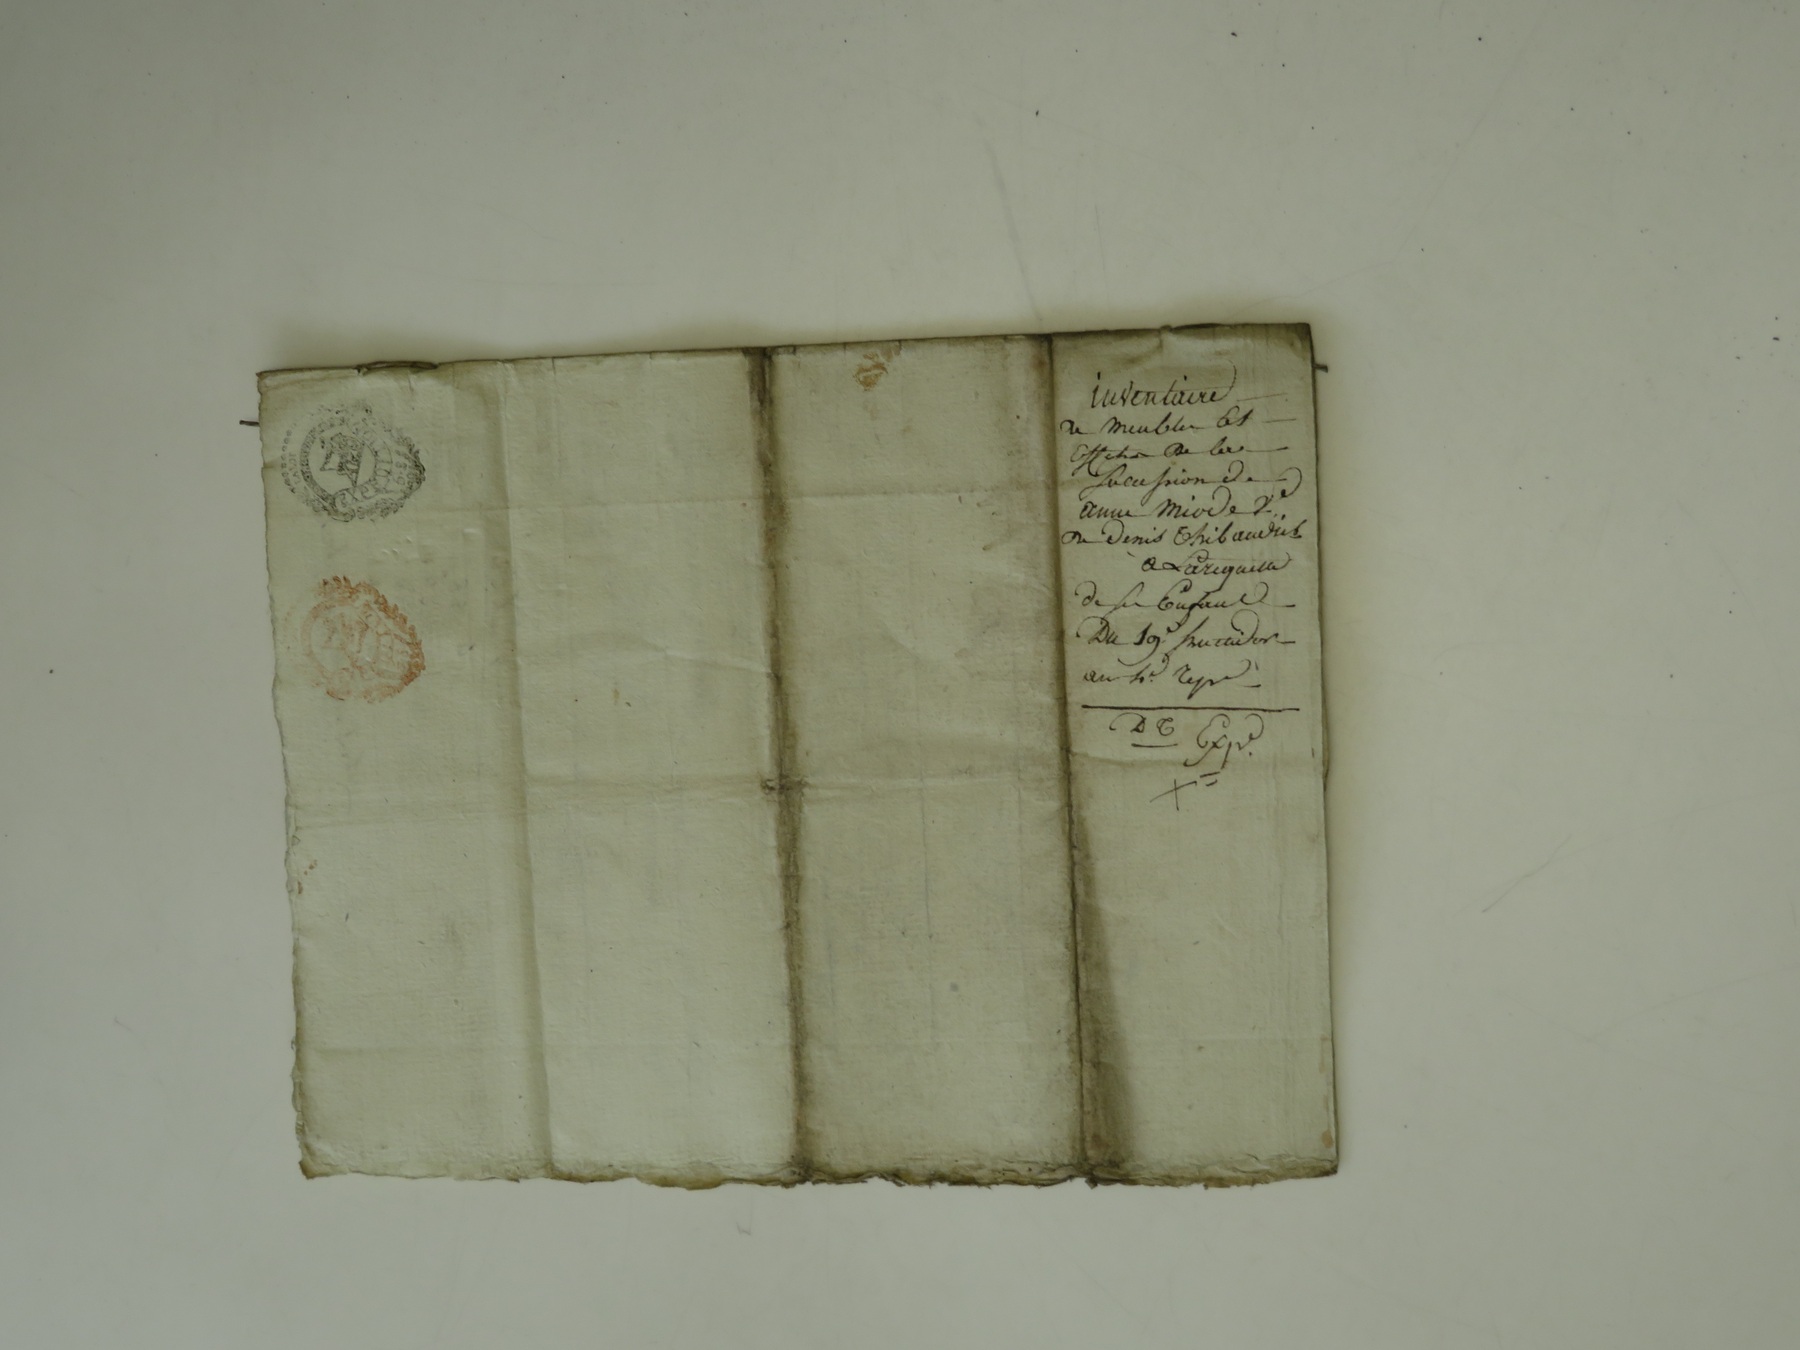 inventaire
de meubles Et
Effets De la
Sucession de
anne Miode V.e
de Denis Thibaudier
a Lareguelle
de ses Enfans
Du 19.e frucidor
an 4.e Repu
DC Exp.e